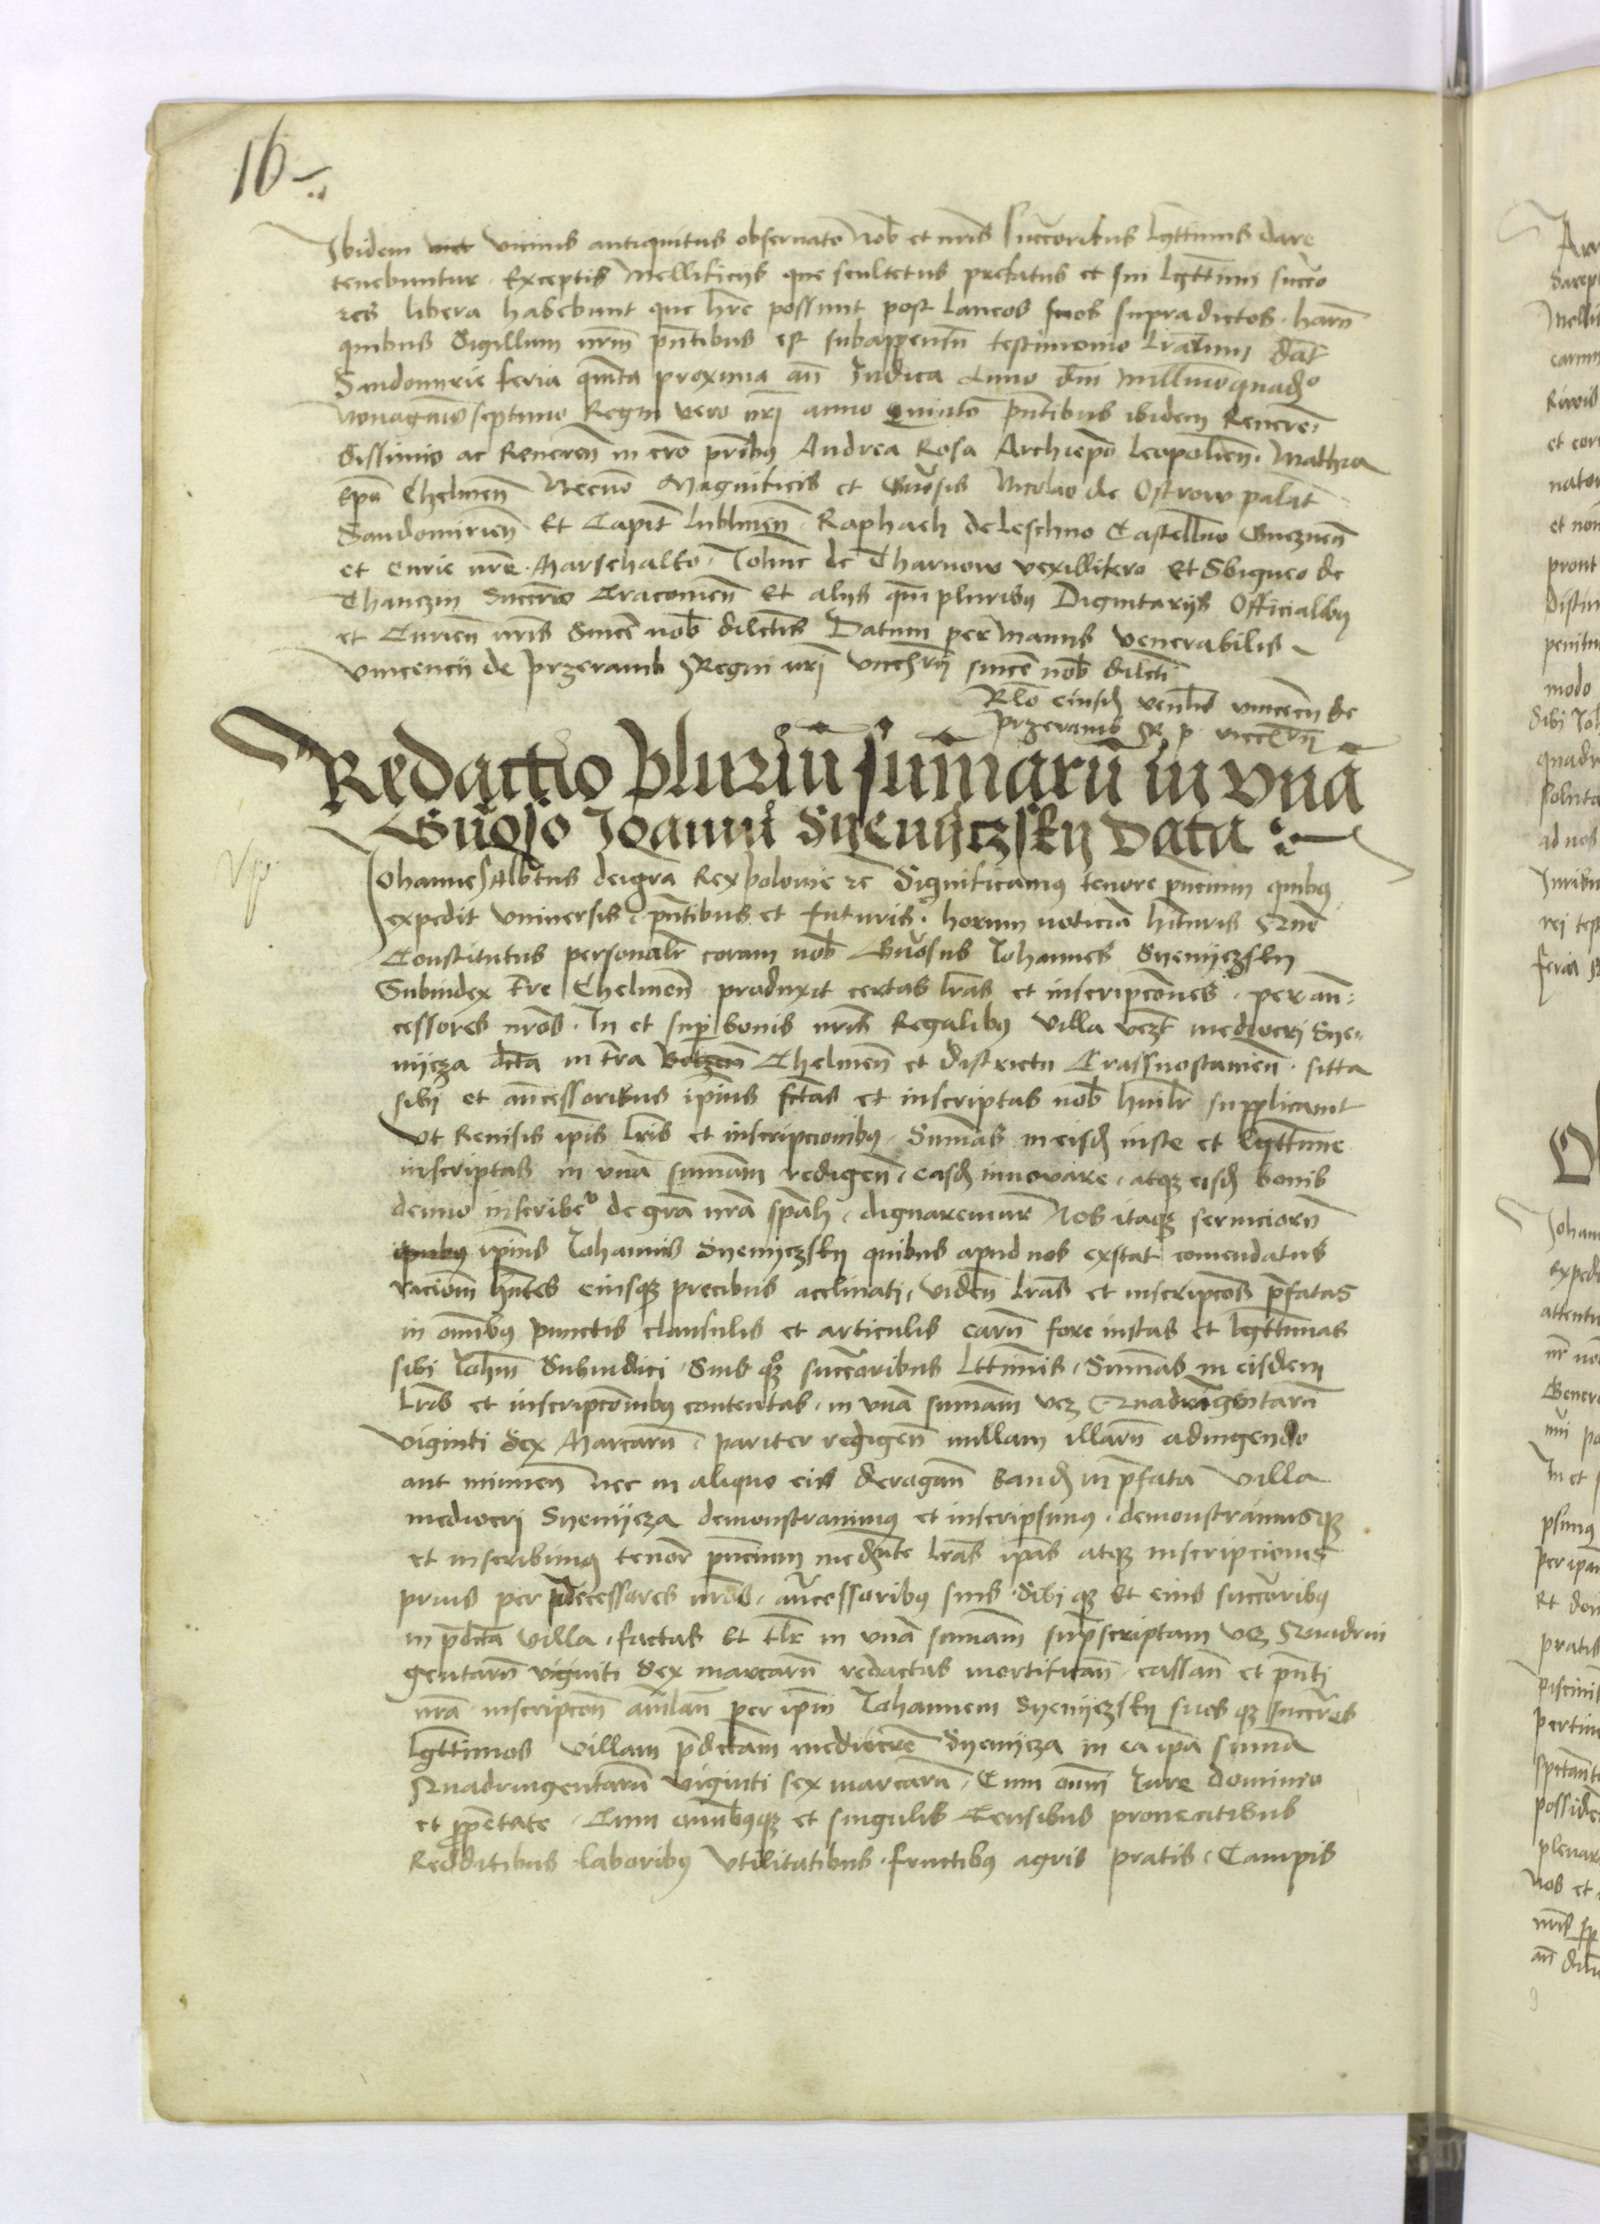 16
Ibidem vicinis antiquitus obseruato nob et nris succoribus lgttimis dare
tenebuntur. Exceptis mellificijs que scultetus prefatus et sui lgttimi succo
res libera habebunt que hre possunt post laneos suos supradictos. harū
quibus Sigillum nrm pntibus est subappensū testimonio lrarum dat
Sandomirie feria quinta proxima an Judica Anno dni millmoquadgo
nonagmo septimo Regni vero nri anno quinto pntibus ibidem Reueren
dissimis ac Reueren in cro pribus Andrea Rosa Archiepo Leopolien. Mathia
Epo Chelmen Necno Magnificis et Gnosis Nicolao de Ostrow palat
Sandomirien Et Capit lublinen. Raphaeli de Leschno Castellno Gneznen
et curie nre. Marschalko. Johne de Tharnow vexillifero Et Sbigneo de
Thanczin Succrro Cracouien Et alijs qm pluribus Dignitarijs Officialibus
et Curien nris Sincer nob dilectis Datum per manus venerabilis
vincencij de przeramb Regni nri vicecrij sincer nob dilcti
Rlo eiusd venlis vincencij de
przeramb R p vicecrij
Redactio pluriū sūmarū in vnā
Gnoso Joanni Syenyczsky data
Johannes Albtus dei gra Rex polonie rc Significamus tenore pncium quibus
expedit vniuersis. pntibus et futuris. horum noticia hituris Quo
Constitutus personalr coram nob Gnosus Johannes Syenyczsky
Subiudex tre Chelmen produxit certas lras et inscripcones. per an
cessores nros. In et supr bonis nris Regalibus villa vzt mediocri Sye
nycza dcta in tra Chelmen et districtu Crassnostauien. sitta
sibi et ancessoribus ipius fctas et inscriptas nob humlr supplicauit
vt Reuisis ipis lris et inscripcionibus. Summas in eisd iuste et lgttime
inscriptas in vna summam redigen. easd innouare. atqz eisd bonis
denuo inscribere de gra nra spali. dignaremur Nos itaqz seruiciorū
ipius Johannis Syenyczsky quibus apud nos exstat comendatus
racionem hntes eiusqz precibus acclinati. viden lras et inscripcoes pfatas
in omibus punctis clausulis et articulis earū fore iustas et lgttimas
sibi Johni Subiudici. Suis qz succoribus lttimis. Summas in eisdem
lris et inscripconibus contentas. in vna summam vez Quadringentarū
viginti Sex Marcarū. pariter redigen nullam illarū adiugendo
aut minuen nec in aliquo eis derogan eand in pfata villa
mediocri Syenycza demonstrauimus et inscripsimus. demonstramusqz
et inscribimus tenor pncium medente lras ipas atqz inscripciones
prius per pdecessores nros. ancessoribus suis. sibi qz Et eius succoribus
in pdcta villa. factas Et tlr in vna summam suprscriptam vez Quadrin
gentarū viginti sex marcarū redactas mortifican. cassan et pnti
nra inscripcon anulan per ipm Johannem Syenyczsky suos qz succres
lgttimos villam pdctam mediocre Syenycza in ea ipa summa
Quadringentarū viginti sex marcarū. Cum omni Jure dominio
et pprietate. Cum omibusqz et singulis Censibus prouentibus
Redditibus laboribus vtilitatibus. fructibus agris pratis. Campis